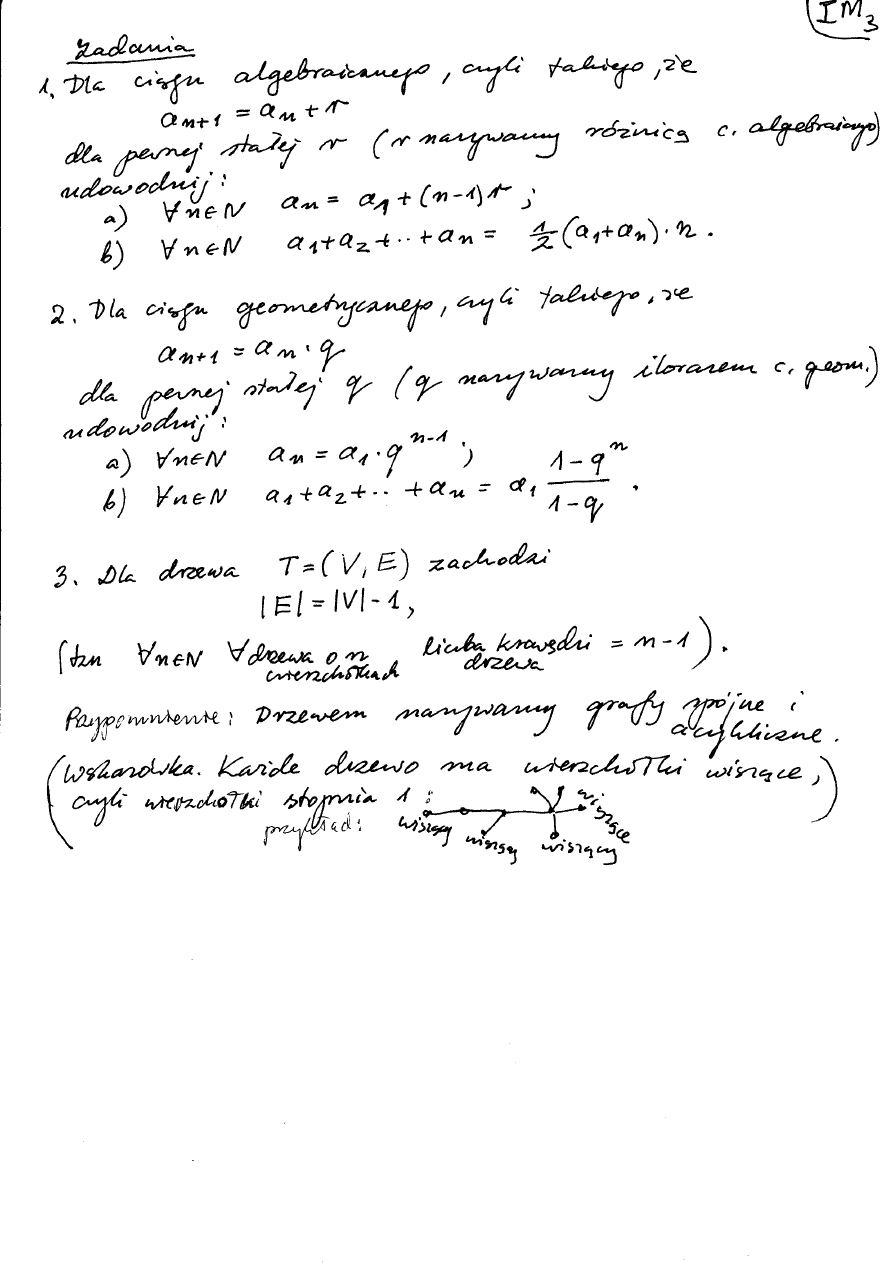 IM₃
Zadania
1. Dla ciągu algebraicznego, czyli takiego, że
aₙ₊₁ = aₙ + r
dla pewnej stałej r (r nazywamy różnicą c. algebraicznego)
udowodnij:
a) ∀n∈N aₙ = a₁ + (n-1)r ;
b) ∀n∈N a₁+a₂+...+aₙ = ½(a₁+aₙ)·n.
2. Dla ciągu geometrycznego, czyli takiego, że
aₙ₊₁ = aₙ · q
dla pewnej stałej q (q nazywamy ilorazem c. geom.)
udowodnij:
a) ∀n∈N aₙ = a₁·qⁿ⁻¹ ;
b) ∀n∈N a₁+a₂+...+aₙ = a₁ (1-qⁿ)/(1-q) .
3. Dla drzewa T=(V,E) zachodzi
|E|=|V|-1,
(tzn ∀n∈N ∀drzewa o n wierzchołkach liczba krawędzi drzewa = n-1).
Przypomnienie: Drzewem nazywamy grafy spójne i
acykliczne.
(Wskazówka. Każde drzewo ma wierzchołki wiszące,
czyli wierzchołki stopnia 1 :)
przykład: wiszący wiszący wiszący wiszące